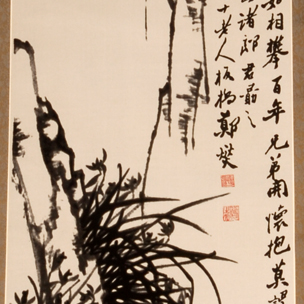 相攀百年兄弟開懷抱莫謂
諸郎君勗之
十老人板橋鄭燮